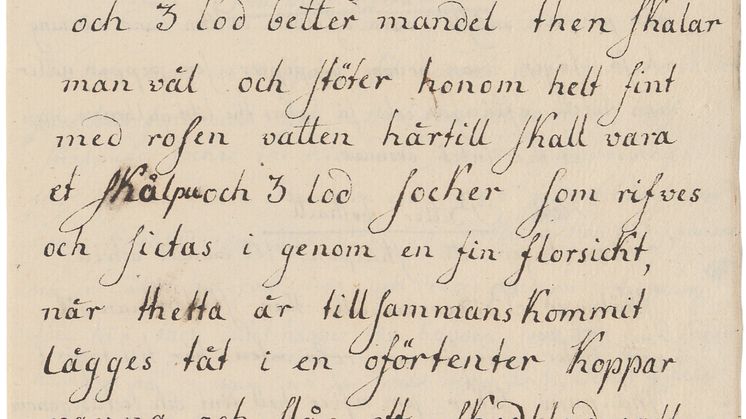 och 3 lod better mandel then skalar
man väl och stöter honom helt fint
med rosen vatten härtill skall vara
et och 3 lod socker som rifves
och sictas i genom en fin florsickt,
når thetta är tillsammans kommit
lägges tät i en oförtenter koppar
och